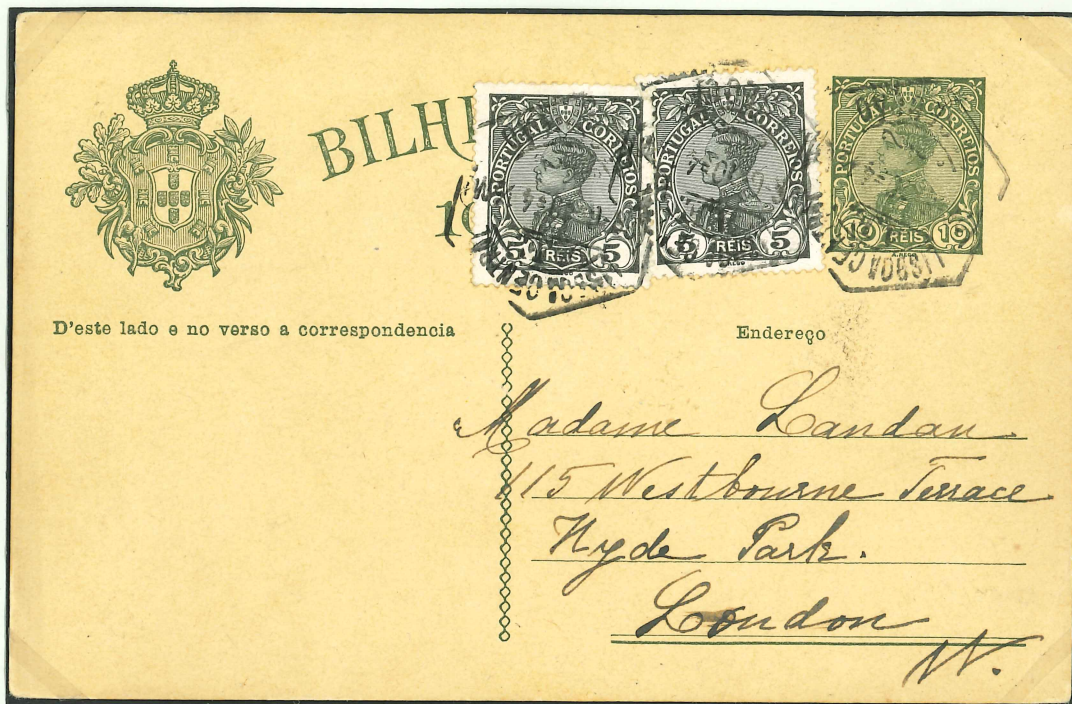 BILH
PORTUGAL CORREIOS
5 REIS 5
PORTUGAL CORREIOS
5 REIS 5
PORTUGAL CORREIOS
10 REIS 10
LISBOA CENTRAL
LISBOA CE
D'este lado e no verso a correspondencia
Endereço
Madame Landau
115 Westbourne Terrace
Hyde Park.
London
W.